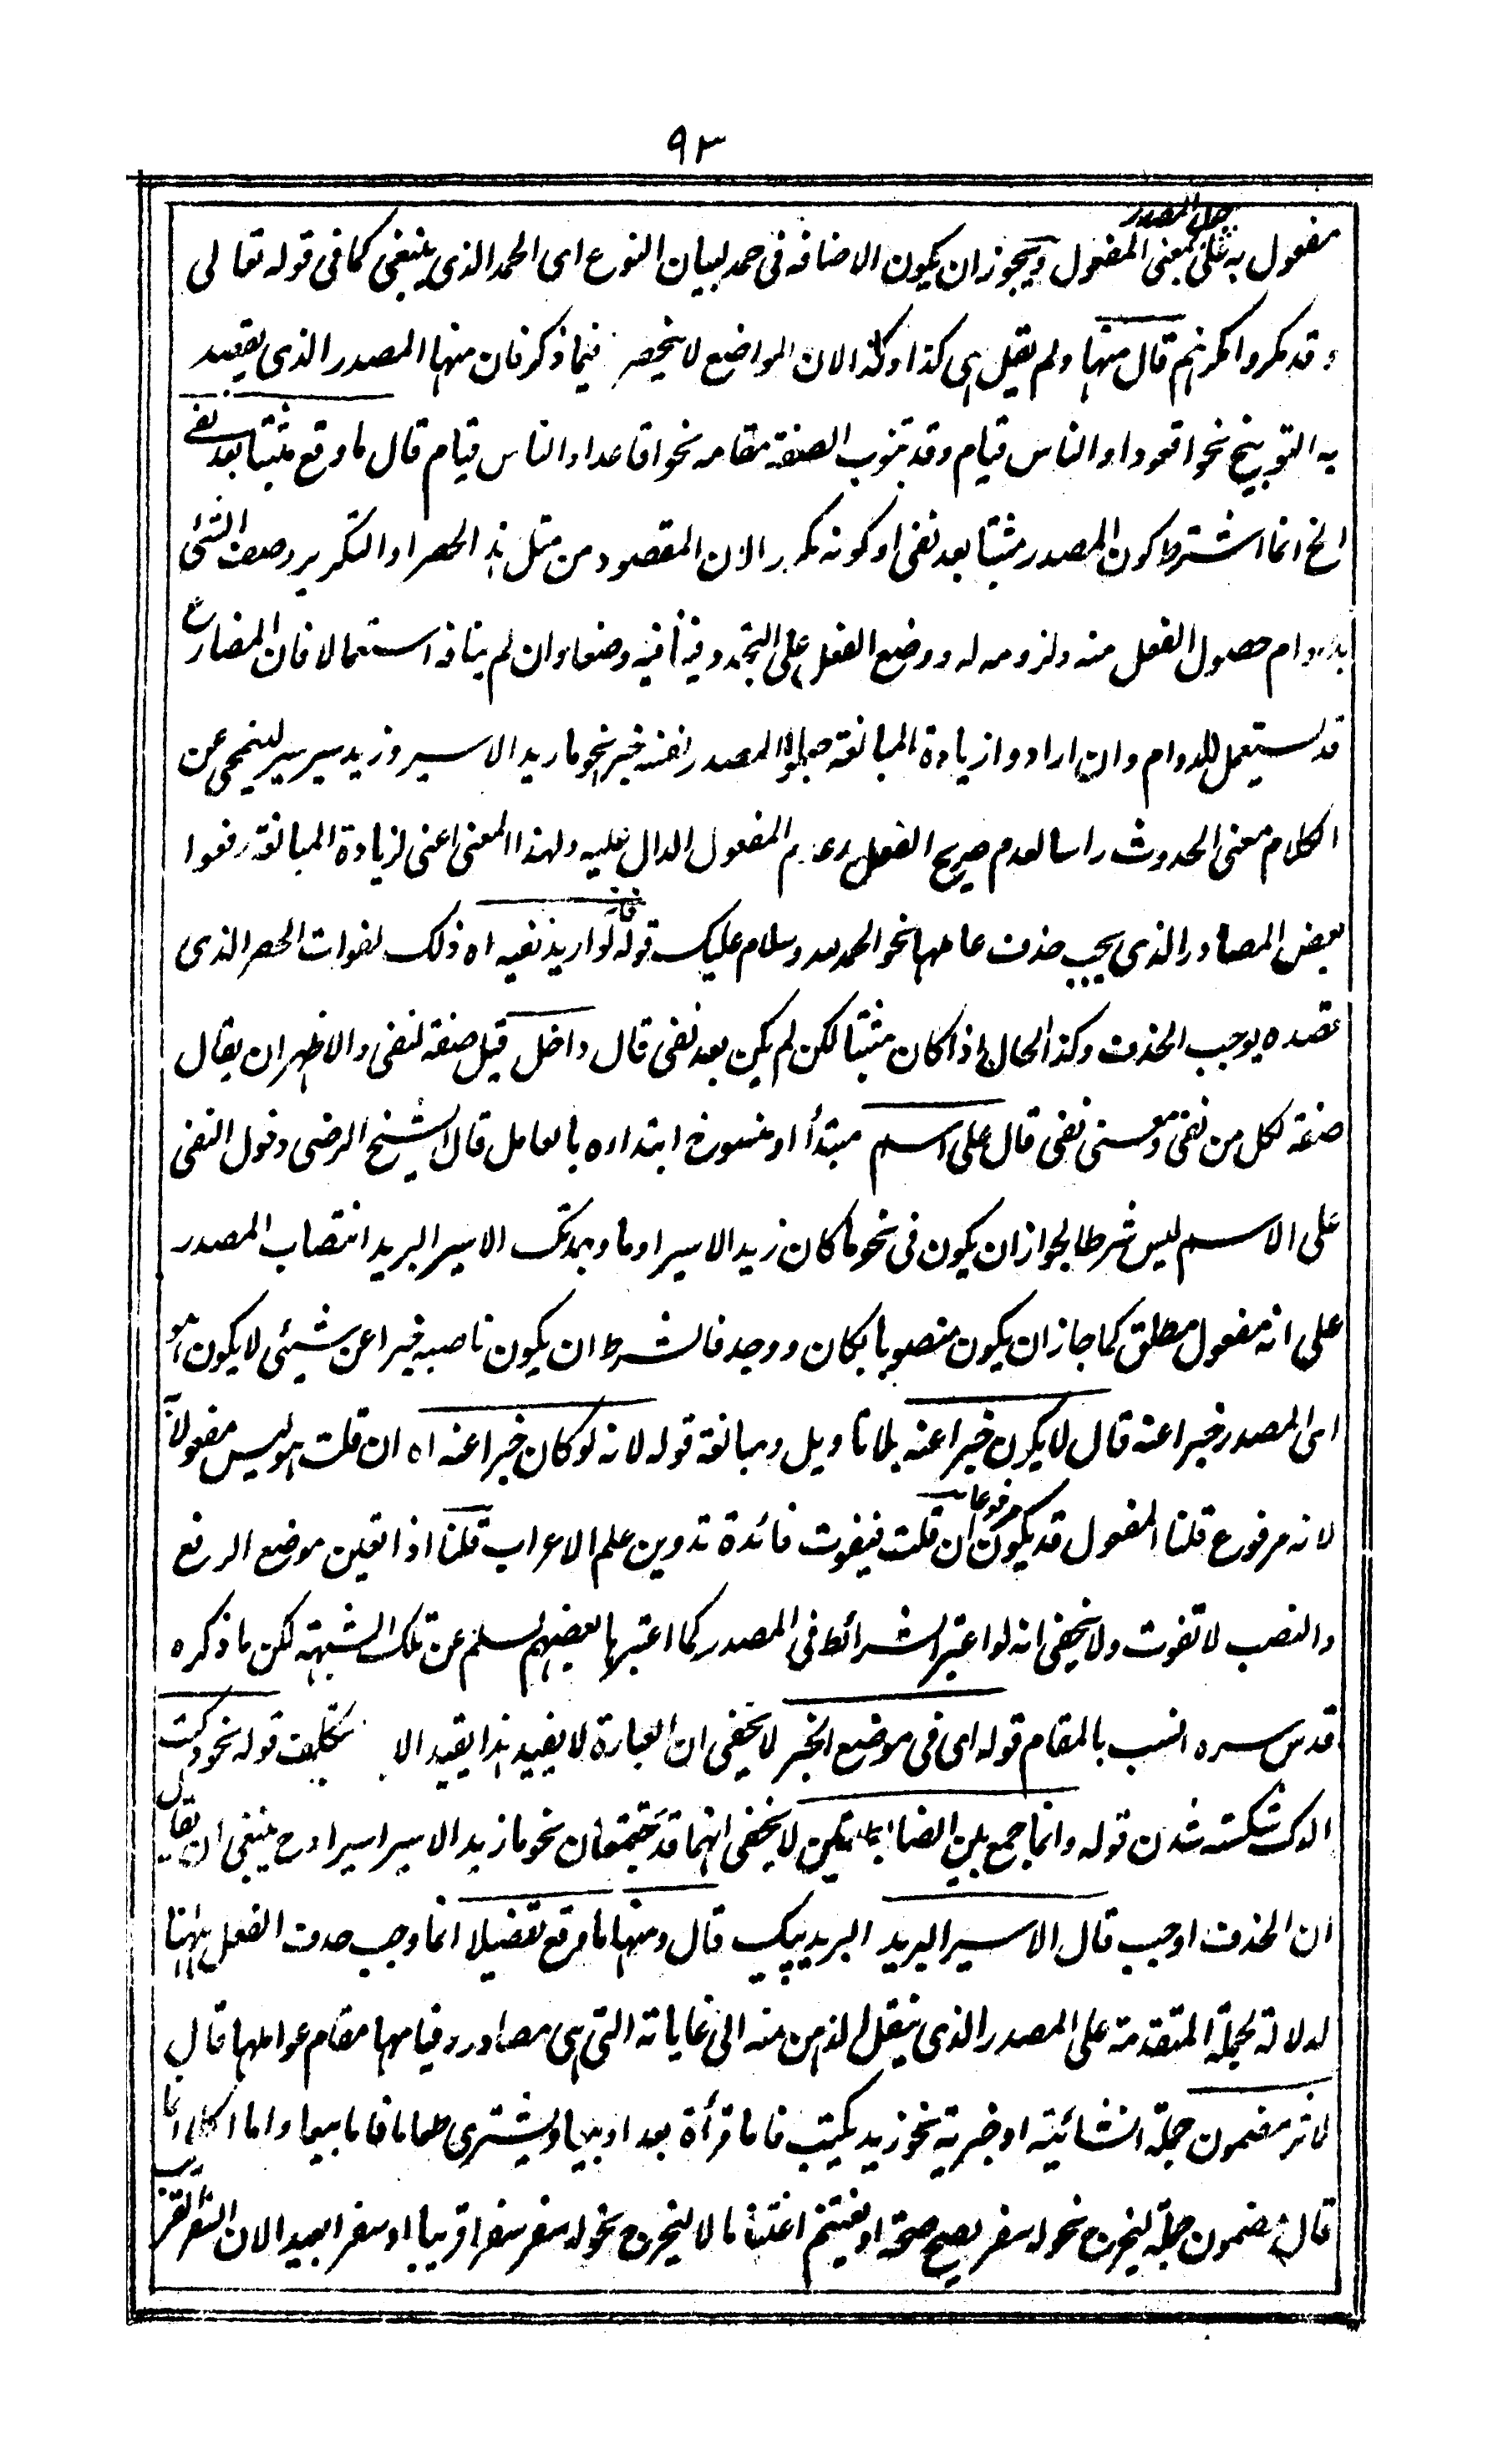 ٩٣
حمل المصدر
مفعول به على بمعنى المفعول ويجوز ان يكون الاضافه فى حمد لبيان النوع اى الحمد الذى ينبغى كما فى قوله تعالى
وقد مكروا مكرهم قال منها ولم يقل هى كذا وكذا لان المواضع لا ينحصر فيما ذكر فان منها المصدر الذى يقصد
به التوبيخ نحو اقعودا والناس قيام وقد تنوب الصفة مقامه نحو اقاعدا والناس قيام قال ما وقع مثبتا بعد نفى
الخ انما اشترط كون المصدر مثبتا بعد نفى او كونه مكررا لان المقصود من مثل هذا الحصر او التكرير وصف الشئ
بدوام حصول الفعل منه ولزومه له ووضع الفعل على التجدد فينافيه وضعا وان لم ينافه استعمالا فان المضارع
قد يستعمل للدوام وان ارادوا زيادة المبالغة جعلوا المصدر نفسه خبر نحو ما زيد الا سير وزيد سير سير لينمحى عن
الكلام معنى الحدوث راسا لعدم صريح الفعل وعدم المفعول الدال عليه ولهذا المعنى اعنى لزيادة المبالغة رفعوا
بعض المصادر الذى يجب حذف عاملها نحو الحمد لله وسلام عليك قوله فانه لو اريد نفيه اه ذلك لفوات الحصر الذى
قصده يوجب الحذف وكذا الحال اذا كان مثبتا لكن لم يكن بعد نفى قال داخل قيل صفة لنفى والاظهر ان يقال
صفة لكل من نفى ومعنى نفى قال على اسم مبتدأ او منسوخ ابتداره بالعامل قال الشيخ الرضى دخول النفى
على الاسم ليس شرطا لجواز ان يكون فى نحو ما كان زيد الا سيرا وما وجدتك الا سير البريد انتصاب المصدر
على انه مفعول مطلق كما جاز ان يكون منصوبا بكان ووجد فالشرط ان يكون ناصبه خبرا عن شيئى لا يكون هو
اى المصدر خبرا عنه قال لا يكون خبرا عنه بلا تاويل ومبالغة قوله لانه لو كان خبرا عنه اه ان قلت هو ليس مفعولا به
لانه مرفوع قلنا المفعول قد يكون مرفوعا ان قلت فيفوت فائدة تدوين علم الاعراب قلنا اذا تعين موضع الرفع
والنصب لا تفوت ولا يخفى انه لو اعتبر الشرائط فى المصدر كما اعتبرها بعضهم لسلم عن تلك الشبهة لكن ما ذكره
قدس سره انسب بالمقام قوله اى فى موضع الخبر لا يخفى ان العبارة لا يفيد هذا يقيد الا بتكلف قوله نحو دكت
الدك شكسته شدن قوله وانما جمع بين الضابطتين لا يخفى انهما قد تجتمعان نحو ما زيد الا سيرا سيرا وح ينبغى ان يقال
ان الحذف اوجب قال الا سير البريد البريد پيك قال ومنها ما وقع تفصيلا انما وجب حذف الفعل ههنا
لدلالة الجملة المتقدمة على المصدر الذى ينتقل الذهن منه الى غاياته التى هى مصادر وقيامها مقام عواملها قال
لاثر مضمون جملة انشائية او خبرية نحو زيد يكتب فاما قرأة بعد او بيعا ويشترى طعاما فاما بيعا واما اكلا
قال مضمون جملة ليخرج نحو له سفر يصح صحة او يغتنم اغتناما لا ليخرج نحو له سفر سفرا قريبا او سفرا بعيدا لان السفر القريب